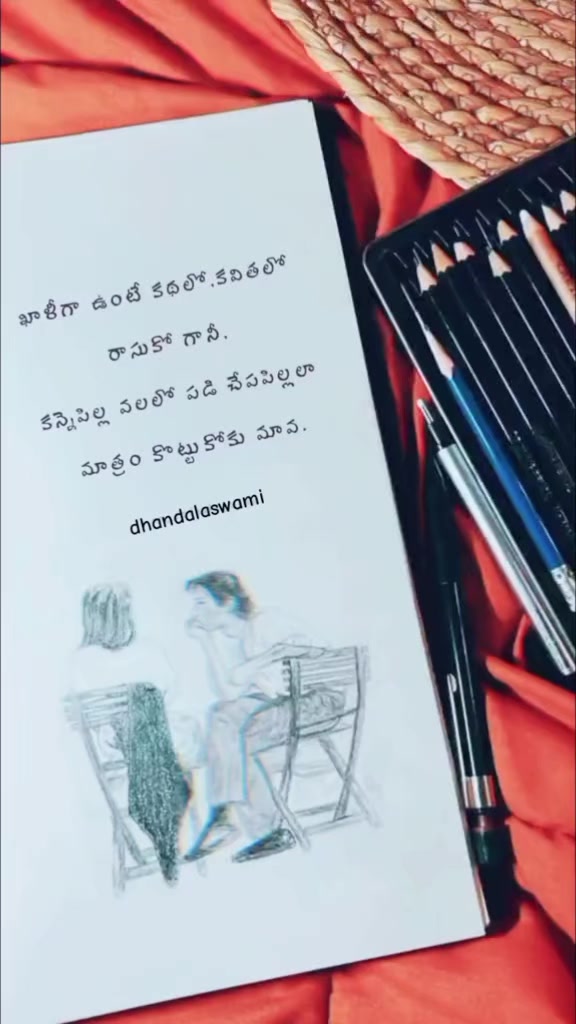 ఖాళీగా ఉంటే కథలో.కవితలో
రాసుకో గానీ.
కన్నెపిల్ల వలలో పడి చేపపిల్లలా
మాత్రం కొట్టుకోకు మావ.
dhandalaswami